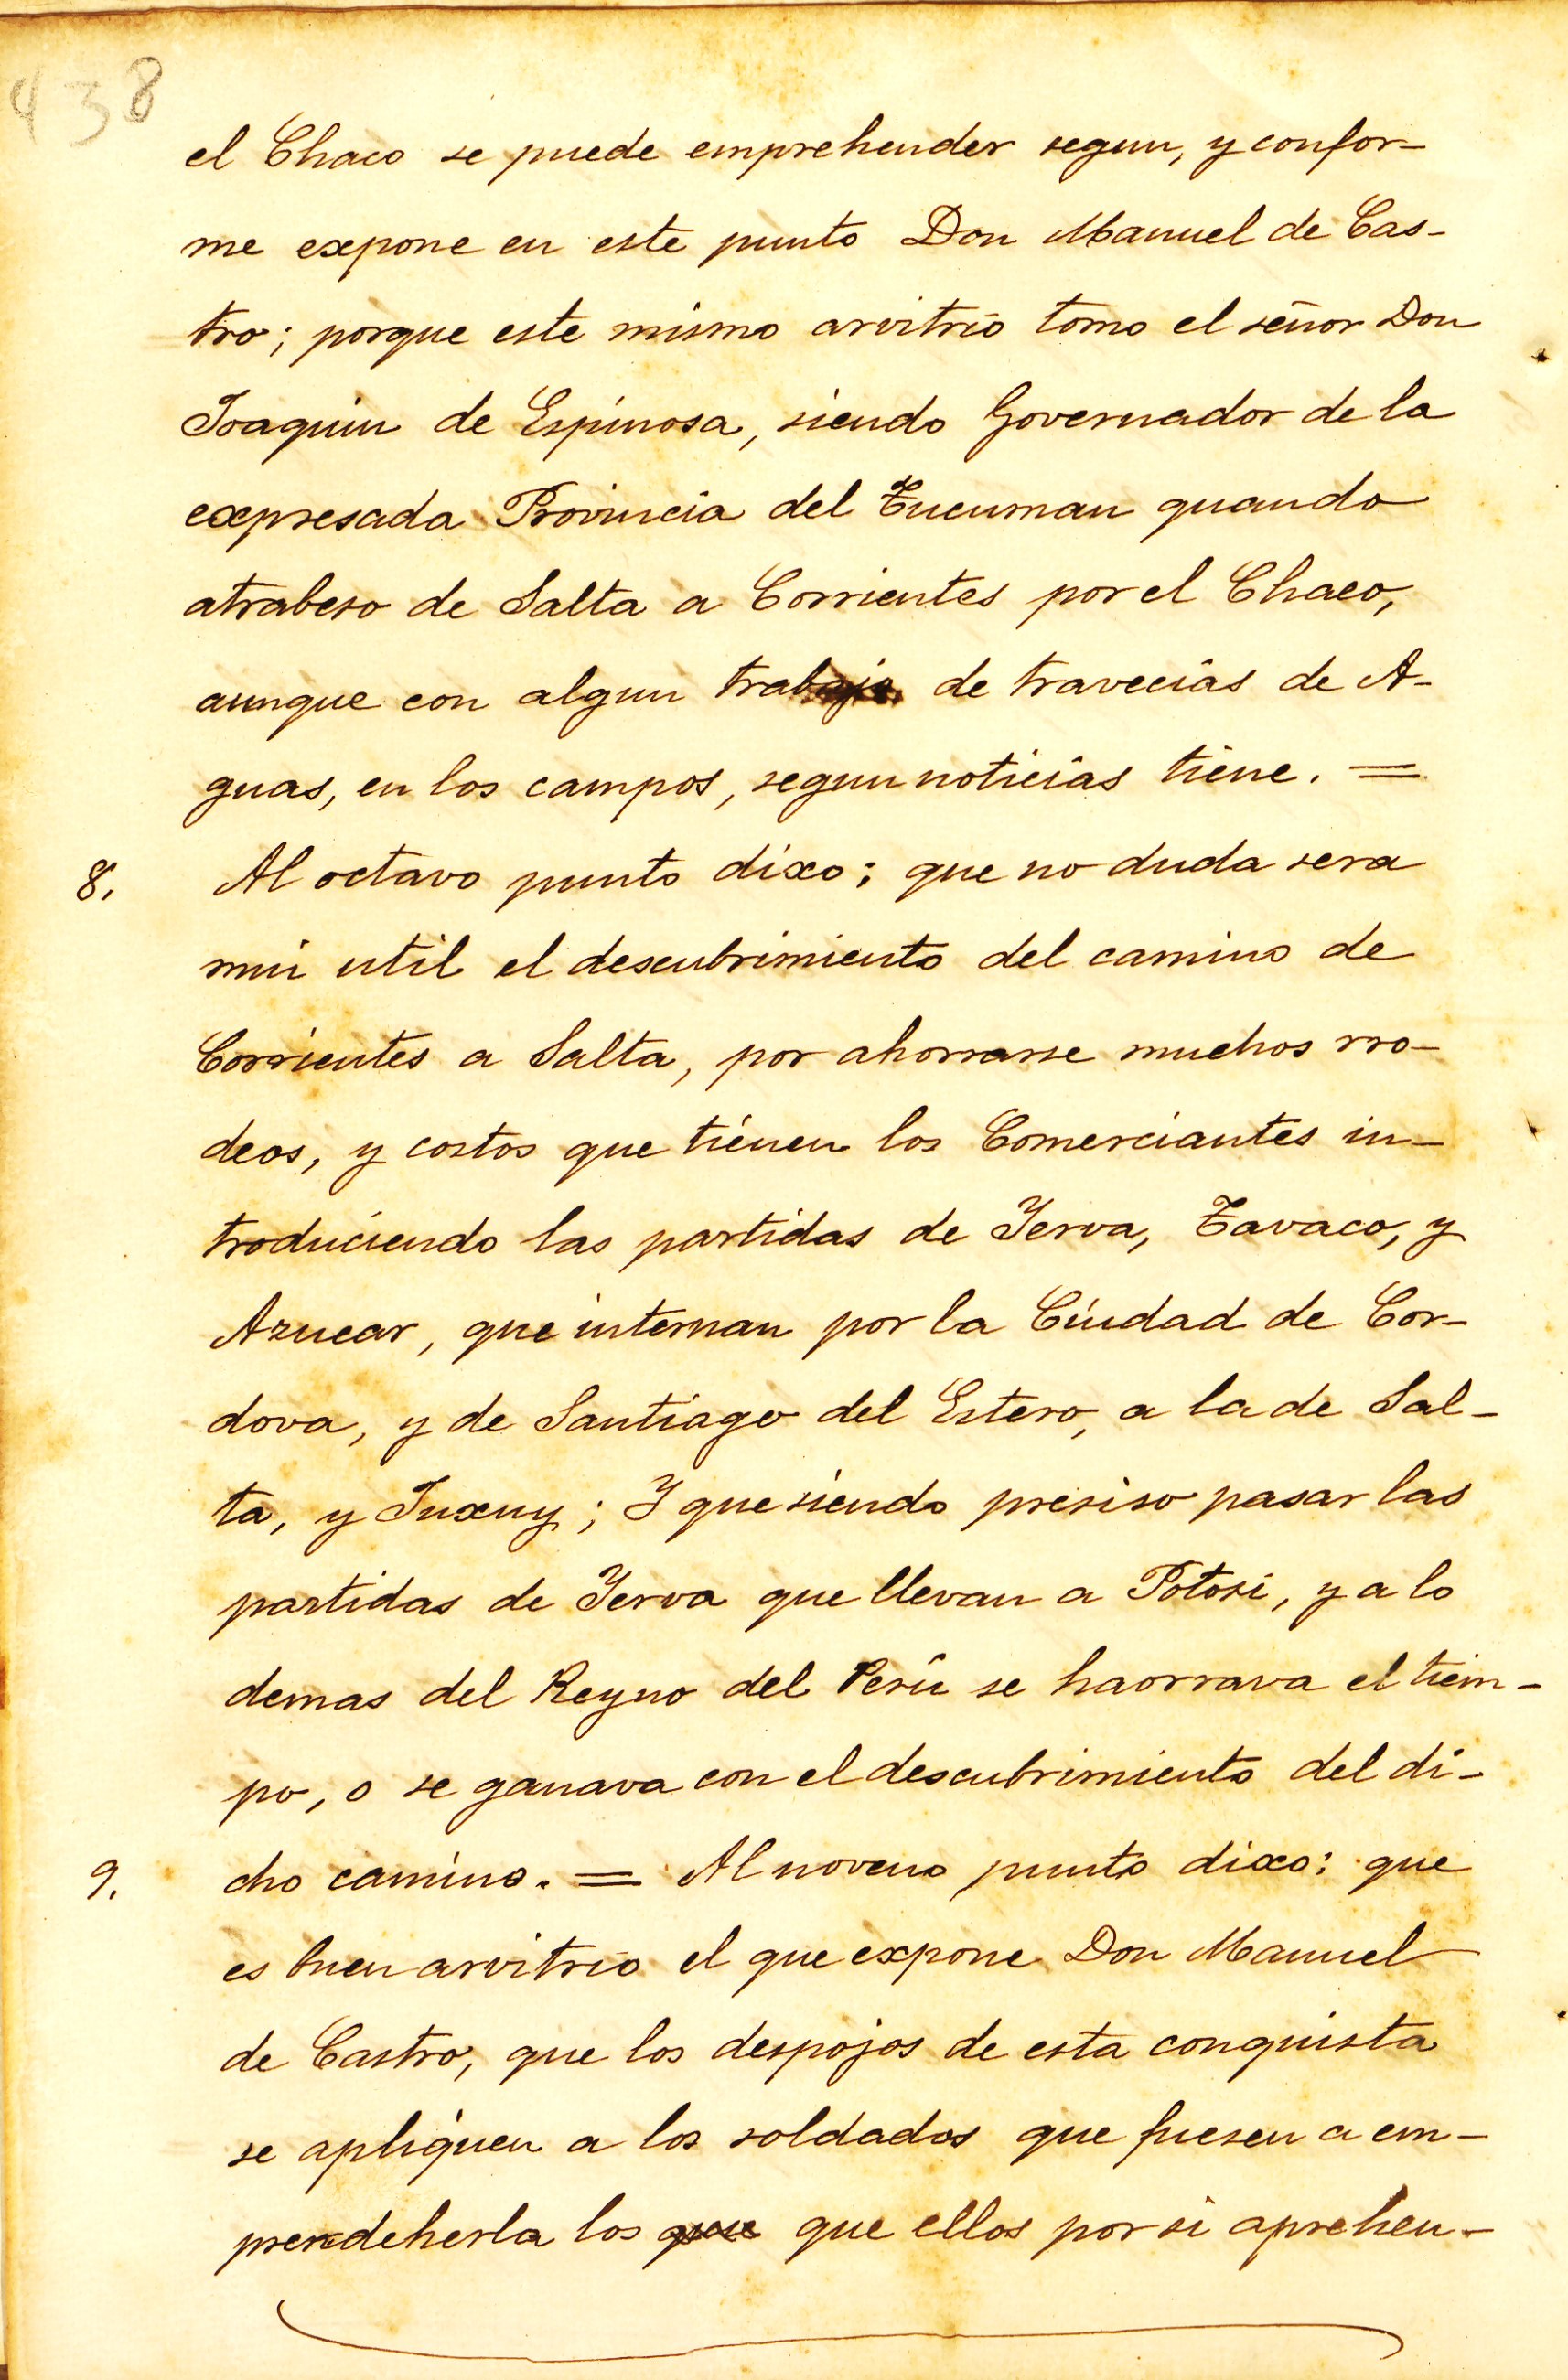 438
el Chaco se puede emprehender segun, y confor-
me expone en este punto Don Manuel de Cas-
tro; porque este mismo arvitrio tomo el señor Don
Joaquin de Espinosa, siendo Governador de la
expresada Provincia del Tucuman quando
atrabeso de Salta a Corrientes por el Chaco,
aunque con algun trabajo de travecias de A-
guas, en los campos, segun noticias tiene. =
8. Al octavo punto dixo; que no duda sera
mui util el descubrimiento del camino de
Corrientes a Salta, por ahorrarse muchos rro-
deos, y costos que tienen los Comerciantes in-
troduciendo las partidas de Yerva, Tavaco, y
Azucar, que internan por la Ciudad de Cor-
dova, y de Santiago del Estero, a la de Sal-
ta, y Juxuy; Y que siendo presiso pasar las
partidas de Yerva que llevan a Potosi, y a lo
demas del Reyno del Perú se haorrava el tiem-
po, o se ganava con el descubrimiento del di-
9. cho camino. = Al noveno punto dixo: que
es buen arvitrio el que expone Don Manuel
de Castro, que los despojos de esta conquista
se apliquen a los soldados que fuesen a em-
prendeherla los que que ellos por si aprehen-